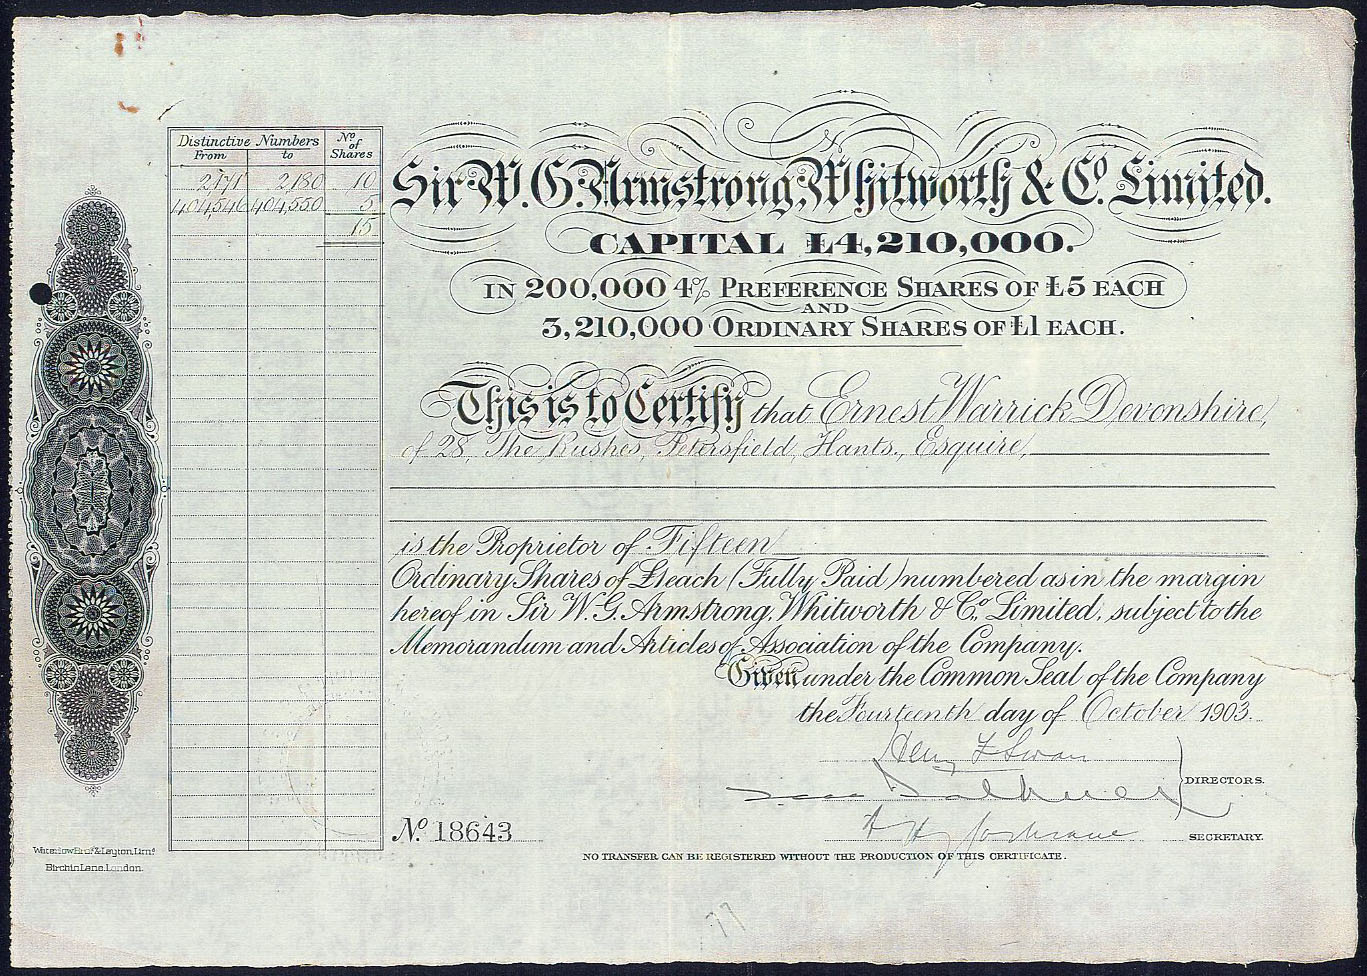 Distinctive Numbers No of Shares
From to
2171 2180 10
404546 404550 5
15
Sir W. G. Armstrong, Whitworth & Co. Limited.
CAPITAL £4,210,000.
IN 200,000 4% PREFERENCE SHARES OF £5 EACH
AND
3,210,000 ORDINARY SHARES OF £1 EACH.
This is to Certify that Ernest Warrick Devonshire,
of 28, The Rushes, Petersfield, Hants., Esquire,
is the Proprietor of Fifteen
Ordinary Shares of £1 each (Fully Paid) numbered as in the margin
hereof in Sir W. G. Armstrong, Whitworth & Co., Limited, subject to the
Memorandum and Articles of Association of the Company.
Given under the Common Seal of the Company
the Fourteenth day of October 1903.
Henry F Swan
DIRECTORS.
Falkner
No. 18643
Cochrane
SECRETARY.
Waterlow Bros. & Layton, Limd.
Birchin Lane, London.
NO TRANSFER CAN BE REGISTERED WITHOUT THE PRODUCTION OF THIS CERTIFICATE.
77